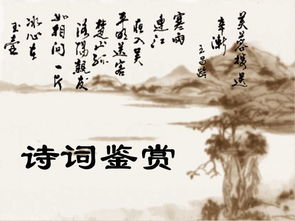 芙蓉楼送
辛渐
王昌龄
寒雨
連江
夜入吴
平明送客
楚山孤
洛陽親友
如相問一片
冰心在
玉壺
诗词鉴赏